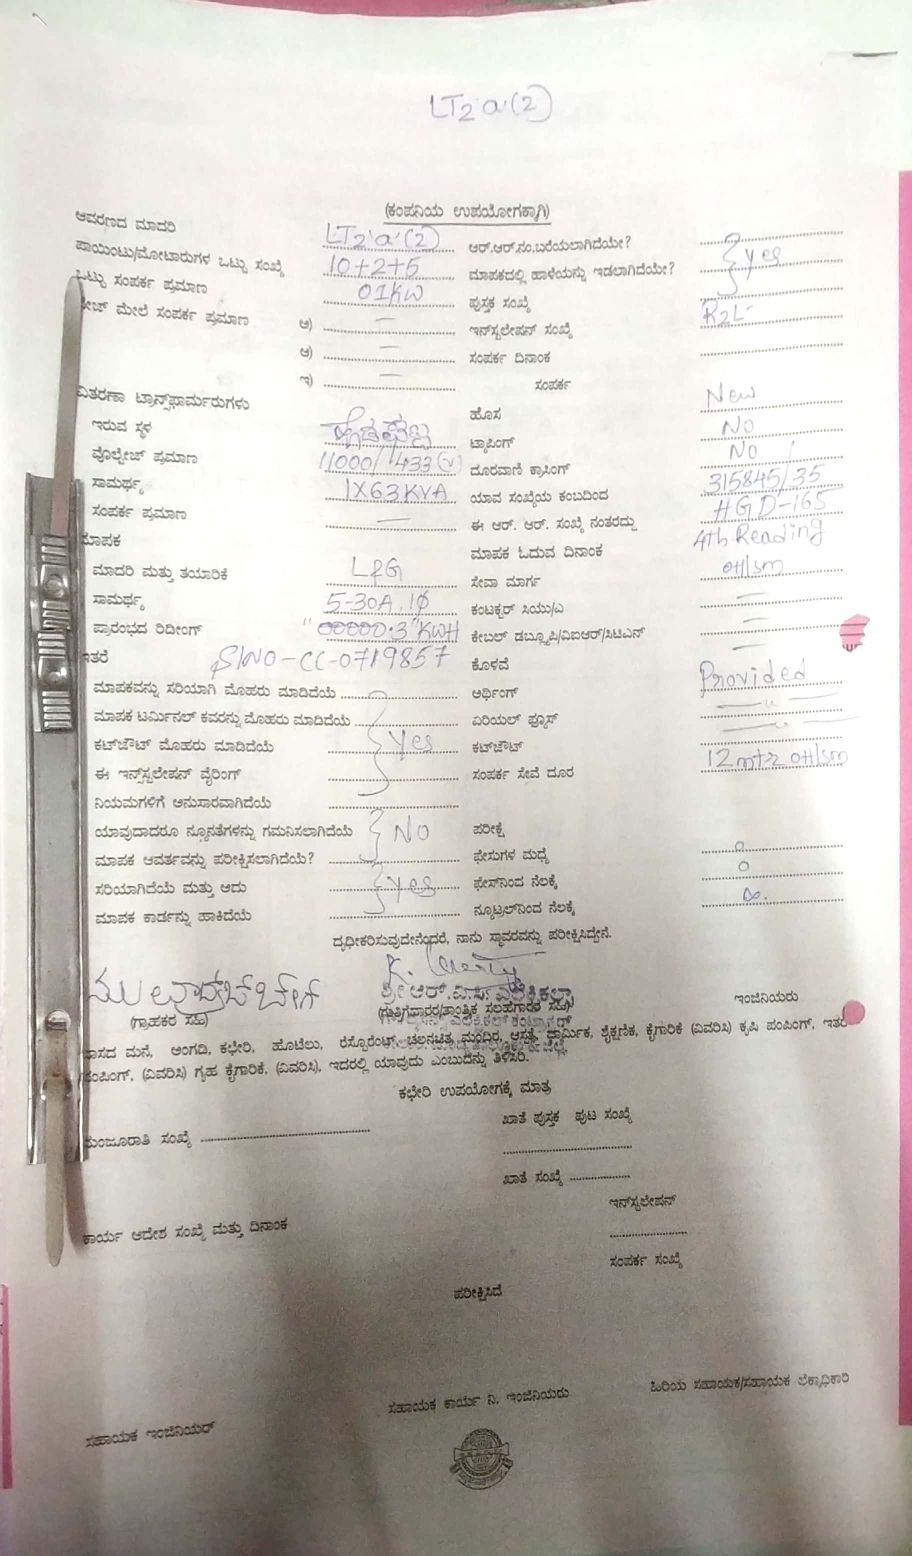 LT2'a'(2)
(ಕಂಪನಿಯ ಉಪಯೋಗಕ್ಕಾಗಿ)
ಆವರಣದ ಮಾದರಿ LT2'a'(2) ಆರ್.ಆರ್.ನಂ.ಬರೆಯಲಾಗಿದೆಯೇ?
ಪಾಯಿಂಟು/ಮೋಟಾರುಗಳ ಒಟ್ಟು ಸಂಖ್ಯೆ 10+2+5 ಮಾಪಕದಲ್ಲಿ ಹಾಳೆಯನ್ನು ಇಡಲಾಗಿದೆಯೇ? } Yes
ಒಟ್ಟು ಸಂಪರ್ಕ ಪ್ರಮಾಣ 01KW ಪುಸ್ತಕ ಸಂಖ್ಯೆ
ಫೇಜ್ ಮೇಲೆ ಸಂಪರ್ಕ ಪ್ರಮಾಣ ಅ) — ಇನ್‌ಸ್ಟಲೇಷನ್ ಸಂಖ್ಯೆ R2L-
ಆ) — ಸಂಪರ್ಕ ದಿನಾಂಕ
ಇ) — ಸಂಪರ್ಕ
ವಿತರಣಾ ಟ್ರಾನ್ಸ್‌ಫಾರ್ಮರುಗಳು
ಇರುವ ಸ್ಥಳ ಹೊಸ New
ವೊಲ್ಟೇಜ್ ಪ್ರಮಾಣ 11000/433(V) ಟ್ಯಾಪಿಂಗ್ No
ಸಾಮರ್ಥ್ಯ 1X63KVA ದೂರವಾಣಿ ಕ್ರಾಸಿಂಗ್ No
ಸಂಪರ್ಕ ಪ್ರಮಾಣ — ಯಾವ ಸಂಖ್ಯೆಯ ಕಂಬದಿಂದ 315845/35
ಮಾಪಕ ಈ ಆರ್. ಆರ್. ಸಂಖ್ಯೆ ನಂತರದ್ದು HGD-165
ಮಾದರಿ ಮತ್ತು ತಯಾರಿಕೆ L&G ಮಾಪಕ ಓದುವ ದಿನಾಂಕ 4th Reading
ಸಾಮರ್ಥ್ಯ 5-30A,1φ ಸೇವಾ ಮಾರ್ಗ OH/sm
ಪ್ರಾರಂಭದ ರಿಡೀಂಗ್ "00000.3"KWH ಕಂಟಕ್ಟರ್ ಸಿಯು/ಎ —
ಇತರೆ S/NO-CC-0719857 ಕೇಬಲ್ ಡಬ್ಲ್ಯೂಪಿ/ವಿಐಆರ್/ಸಿಟಿಎನ್ —
ಕೊಳವೆ —
ಮಾಪಕವನ್ನು ಸರಿಯಾಗಿ ಮೊಹರು ಮಾಡಿದೆಯೆ ಅರ್ಥಿಂಗ್ Provided
ಮಾಪಕ ಟರ್ಮಿನಲ್ ಕವರನ್ನು ಮೊಹರು ಮಾಡಿದೆಯೆ ಏರಿಯಲ್ ಫ್ಯೂಸ್ — " —
ಕಟ್‌ಔಟ್ ಮೊಹರು ಮಾಡಿದೆಯೆ } Yes ಕಟ್‌ಔಟ್ — " —
ಈ ಇನ್‌ಸ್ಟಲೇಷನ್ ವೈರಿಂಗ್ ಸಂಪರ್ಕ ಸೇವೆ ದೂರ 12mtr OH/sm
ನಿಯಮಗಳಿಗೆ ಅನುಸಾರವಾಗಿದೆಯೆ
ಯಾವುದಾದರೂ ನ್ಯೂನತೆಗಳನ್ನು ಗಮನಿಸಲಾಗಿದೆಯೆ } No ಪರೀಕ್ಷೆ
ಮಾಪಕ ಆವರ್ತವನ್ನು ಪರೀಕ್ಷಿಸಲಾಗಿದೆಯೆ? ಫೇಸುಗಳ ಮಧ್ಯೆ 0
ಸರಿಯಾಗಿದೆಯೆ ಮತ್ತು ಅದು } Yes ಫೇಸ್‌ನಿಂದ ನೆಲಕ್ಕೆ 0
ಮಾಪಕ ಕಾರ್ಡನ್ನು ಹಾಕಿದೆಯೆ ನ್ಯೂಟ್ರಲ್‌ನಿಂದ ನೆಲಕ್ಕೆ ∞.
ದೃಢೀಕರಿಸುವುದೇನೆಂದರೆ, ನಾನು ಸ್ಥಾವರವನ್ನು ಪರೀಕ್ಷಿಸಿದ್ದೇನೆ.
ಶ್ರೀ ಆರ್.ವಿ.ಎಸ್. ಎಲೆಕ್ಟ್ರಿಕಲ್ಸ್
(ಗ್ರಾಹಕರ ಸಹಿ) (ಗುತ್ತಿಗೆದಾರರ/ತಾಂತ್ರಿಕ ಸಲಹೆಗಾರರ ಸಹಿ) ಇಂಜಿನಿಯರು
ವಾಸದ ಮನೆ, ಅಂಗಡಿ, ಕಛೇರಿ, ಹೊಟೆಲು, ರೆಸ್ಟೊರೆಂಟ್, ಚಲನಚಿತ್ರ ಮಂದಿರ, ಆಸ್ಪತ್ರೆ, ಧಾರ್ಮಿಕ, ಶೈಕ್ಷಣಿಕ, ಕೈಗಾರಿಕೆ (ವಿವರಿಸಿ) ಕೃಷಿ ಪಂಪಿಂಗ್, ಇತರೆ
ಪಂಪಿಂಗ್, (ವಿವರಿಸಿ) ಗೃಹ ಕೈಗಾರಿಕೆ, (ವಿವರಿಸಿ), ಇದರಲ್ಲಿ ಯಾವುದು ಎಂಬುದನ್ನು ತಿಳಿಸಿರಿ.
ಕಛೇರಿ ಉಪಯೋಗಕ್ಕೆ ಮಾತ್ರ
ಮಂಜೂರಾತಿ ಸಂಖ್ಯೆ ಖಾತೆ ಪುಸ್ತಕ ಪುಟ ಸಂಖ್ಯೆ
ಖಾತೆ ಸಂಖ್ಯೆ
ಇನ್‌ಸ್ಟಲೇಷನ್
ಕಾರ್ಯ ಆದೇಶ ಸಂಖ್ಯೆ ಮತ್ತು ದಿನಾಂಕ
ಸಂಪರ್ಕ ಸಂಖ್ಯೆ
ಪರೀಕ್ಷಿಸಿದೆ
ಸಹಾಯಕ ಇಂಜಿನಿಯರ್ ಸಹಾಯಕ ಕಾರ್ಯ ನಿ. ಇಂಜಿನಿಯರು ಹಿರಿಯ ಸಹಾಯಕ/ಸಹಾಯಕ ಲೆಕ್ಕಾಧಿಕಾರಿ